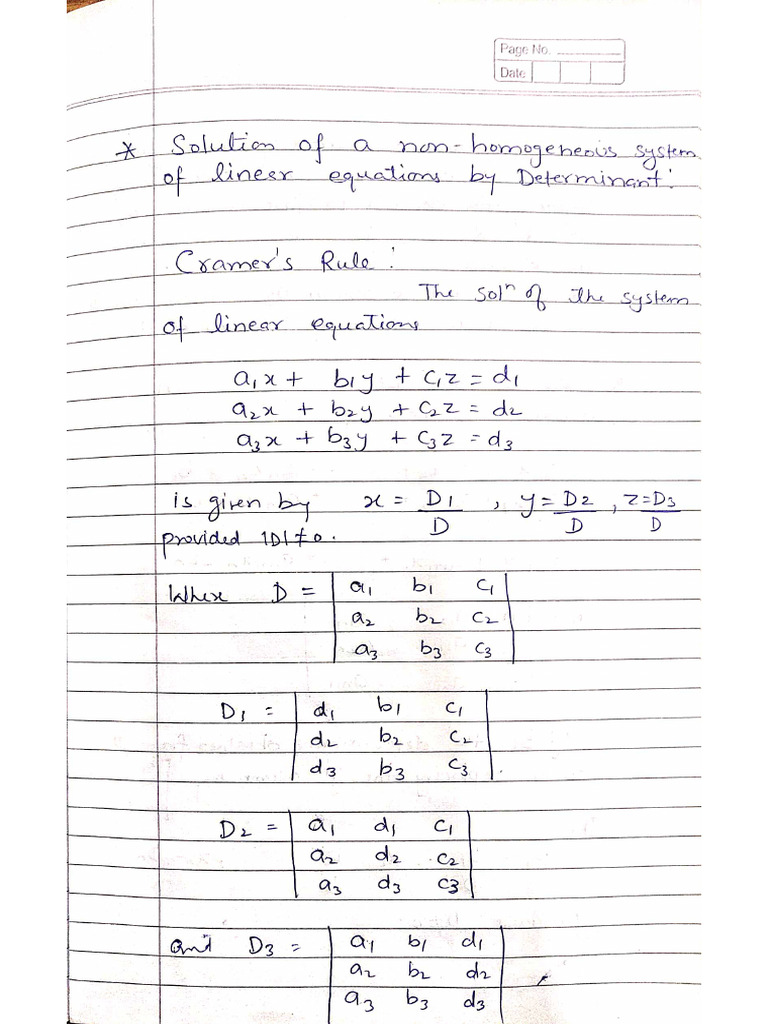 Page No.
Date
* Solution of a non-homogeneous system
of linear equations by Determinant:
Cramer's Rule:
The solⁿ of the system
of linear equations
a₁x + b₁y + c₁z = d₁
a₂x + b₂y + c₂z = d₂
a₃x + b₃y + c₃z = d₃
is given by x = D₁/D , y = D₂/D , z = D₃/D
provided |D| ≠ 0.
Where D = | a₁ b₁ c₁ |
| a₂ b₂ c₂ |
| a₃ b₃ c₃ |
D₁ = | d₁ b₁ c₁ |
| d₂ b₂ c₂ |
| d₃ b₃ c₃ |.
D₂ = | a₁ d₁ c₁ |
| a₂ d₂ c₂ |
| a₃ d₃ c₃ |
and D₃ = | a₁ b₁ d₁ |
| a₂ b₂ d₂ |
| a₃ b₃ d₃ |